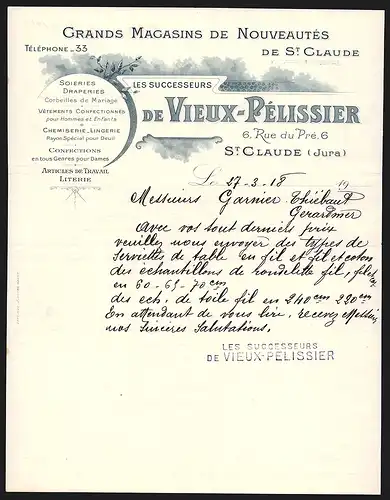 GRANDS MAGASINS DE NOUVEAUTÉS
DE ST CLAUDE
TÉLÉPHONE_33
SOIERIES
DRAPERIES
Corbeilles de Mariage
VÊTEMENTS CONFECTIONNÉS
pour Hommes et Enfants
CHEMISERIE, LINGERIE
Rayon Spécial pour Deuil
CONFECTIONS
en tous Genres pour Dames
ARTICLES DE TRAVAIL
LITERIE
LES SUCCESSEURS
DE VIEUX-PÉLISSIER
6, Rue du Pré, 6
ST CLAUDE (JURA)
Le 27-3-18 19
Messieurs Garnier Thiébaut
Gerardmer
Avec vos tout derniers prix
veuillez nous envoyer des types de
Serviettes de table en fil et fil et coton
des échantillons de rondelette fil, fil et
en 60-65-70 cm
des ech. de toile fil en 240 cm 220 cm
En attendant de vous lire, recevez Messieurs
nos Sincères Salutations.
LES SUCCESSEURS
DE VIEUX-PÉLISSIER